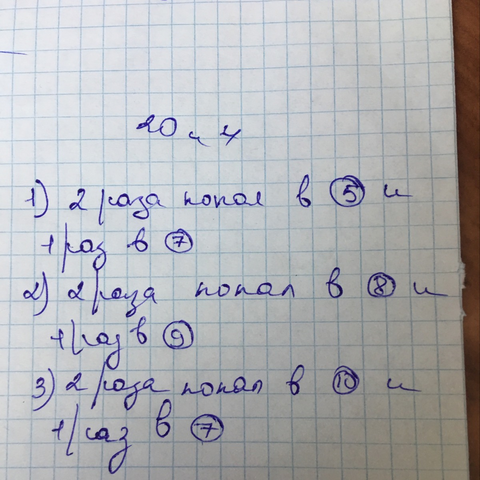 20 и 4
1) 2 раза попал в 5 и
1 раз в 7
2) 2 раза попал в 8 и
1 раз в 9
3) 2 раза попал в 10 и
1 раз в 7